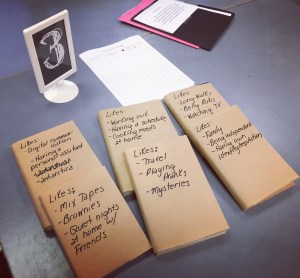 3
Likes:
- Working out
- Having a schedule
- Cooking meals
at home
Likes:
- Long Walks
- Belly Rubs
- Watching TV
Likes:
- Digital
- Having a
personal assistant
- Antarctica
Likes:
- Travel
- Playing
Pranks
- Mysteries
Likes:
- Family
- Being independent
- Having own
identity/reputation
Likes:
- Mix Tapes
- Brownies
- Quiet nights
at home w/
Friends